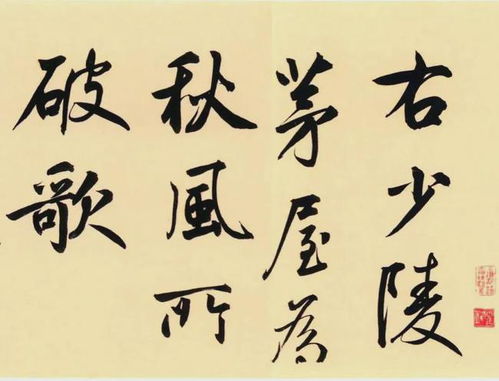 右少陵
茅屋為
秋風所
破歌